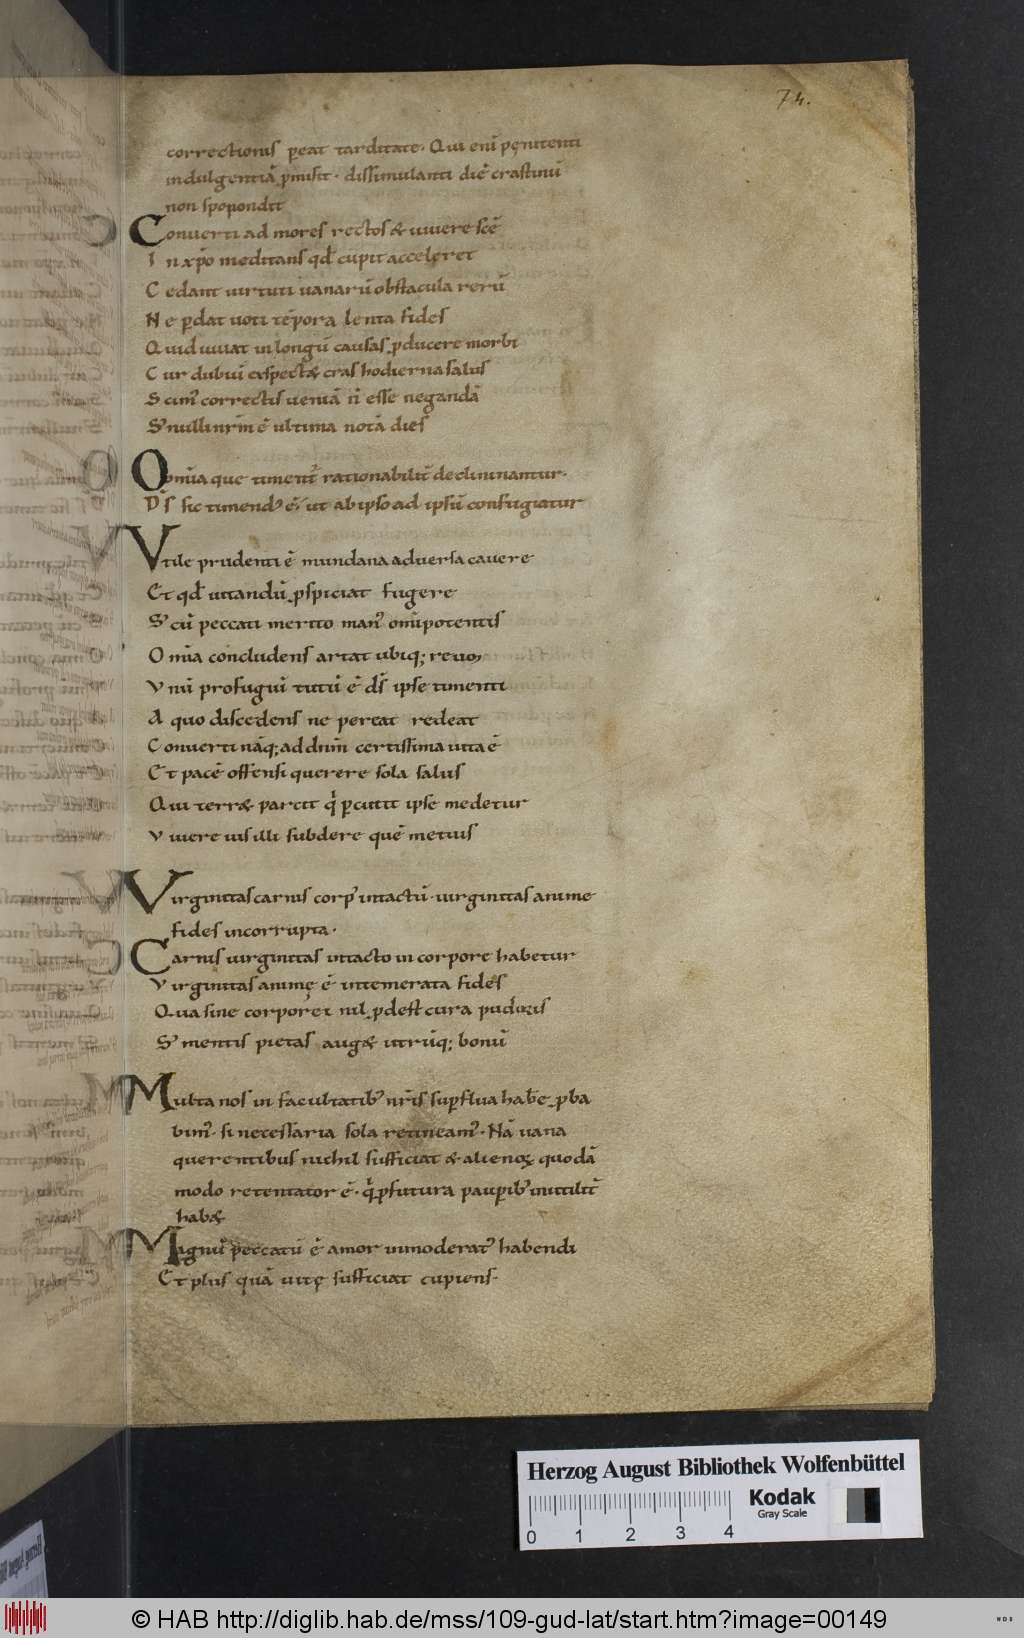 74.
correctionis ꝑeat tarditate. Qui eni̅ pęnitenti
indulgentiā ꝓmisit. dissimulanti die̅ crastinū
non spopondit
Conuerti ad mores rectos & uiuere sce̅
In xp̅o meditans qd̅ cupit acceleret
Cedant uirtuti uanarū obstacula rerū
Ne ꝑdat uoti te̅pora lenta fides
Quid iuuat in longū causas ꝓducere morbi
Cur dubiū exspect& cras hodierna salus
Scim᾽ correctis ueniā n̅ esse negandā
S; nulli nr̅m ē ultima nota dies
Omnia que timent᷑ rationabilit᷑ declinnantur.
D̅s sic timend᾽ ē, ut ab ipso ad ipsū confugiatur
Vtile prudenti ē mundana aduersa cauere
Et qd̅ uitandū ꝑspiciat fugere
S; cū peccati merito man᾽ omīpotentis
Omīa concludens artat ubiq; reuo
Vnū profugiū tutū ē d̅s ipse timenti
A quo discedens ne pereat redeat
Conuerti nāq; ad dn̅m certissima uita ē
Et pacē offensi querere sola salus
Qui terr& parcit q̅ ꝑcutit ipse medetur
Viuere uis illi subdere quē metuis
Virginitas carnis corp᾽ intactū. uirginitas anime
fides incorrupta.
Carnis uirginitas intacto in corpore habetur
Virginitas animę ē intemerata fides
Qua sine corporei nil ꝓdest cura pudoris
S; mentis pietas aug& utrūq; bonū
Multa nos in facultatib᾽ nr̅is suꝑflua habe̅ ꝓba
bim᾽. si necessaria sola retineam᾽. Nā uana
querentibus nichil sufficiat & alienoꝝ quodā
modo retentator ē. q̅ ꝓfutura pauꝑib᾽ inutilit᷑
hab&
Magnū peccatū ē amor inmoderat᾽ habendi
Et plus quā uitę sufficiat cupiens.
Herzog August Bibliothek Wolfenbüttel
Kodak
Gray Scale
0 1 2 3 4
© HAB http://diglib.hab.de/mss/109-gud-lat/start.htm?image=00149
WDB